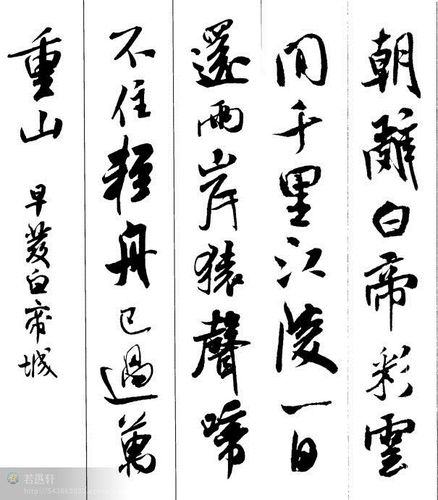 朝辭白帝彩雲
間千里江陵一日
還兩岸猿聲啼
不住輕舟已過萬
重山
早發白帝城
若愚轩